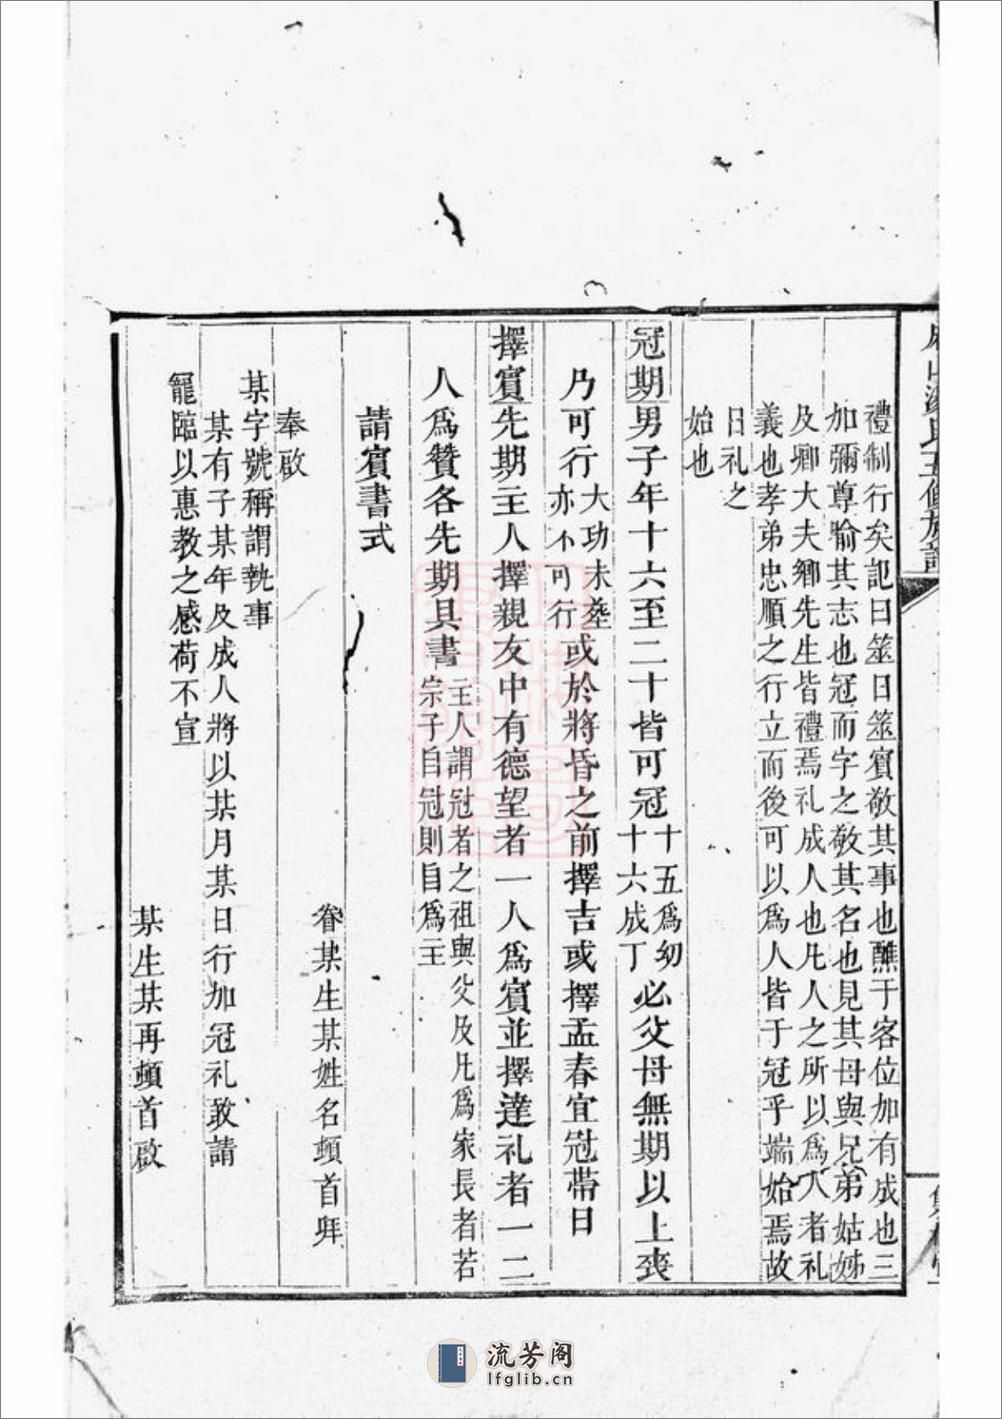 禮制行矣記曰筮日筮賓敬其事也醮于客位加有成也三
加彌尊喻其志也冠而字之敬其名也見其母與兄弟姑姊
及卿大夫鄉先生皆禮焉礼成人也凡人之所以為人者礼
義也孝弟忠順之行立而後可以為人皆于冠乎端始焉故
曰礼之
始也
冠期男子年十六至二十皆可冠十五為幼十六成丁必父母無期以上喪
乃可行大功未塟亦不可行或於將昏之前擇吉或擇孟春宜冠帶日
擇賓先期主人擇親友中有德望者一人為賓並擇達礼者一二
人為贊各先期具書主人謂冠者之祖與父及凡為家長者若宗子自冠則自為主
請賓書式
眷某生某姓名頓首拜
奉啟
某字號稱謂執事
某有子某年及成人將以某月某日行加冠礼敢請
寵臨以惠教之感荷不宣
某生某再頓首啟
流芳阁
lfglib.cn